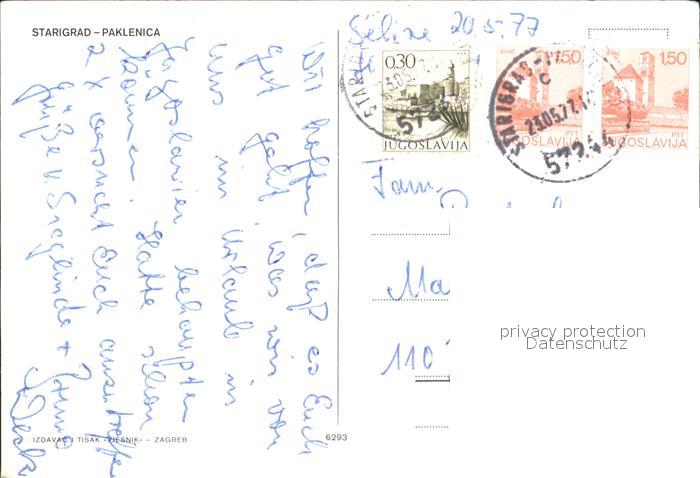 STARIGRAD – PAKLENICA
Seline 20.5.77
Wir hoffen, daß es Euch
gut geht, was wir von
uns im Urlaub in
Jugoslawien behaupten
können. Hatte schon
2 x versucht Euch anzutreffen
Grüße v. Sieglinde +
0,30
JUGOSLAVIJA
1,50
PTT
JUGOSLAVIJA
1,50
PTT
JUGOSLAVIJA
STARIGRAD
23.05.77
57244
Fam.
Ma
110
privacy protection
Datenschutz
IZDAVAČ I TISAK »VJESNIK« – ZAGREB
6293